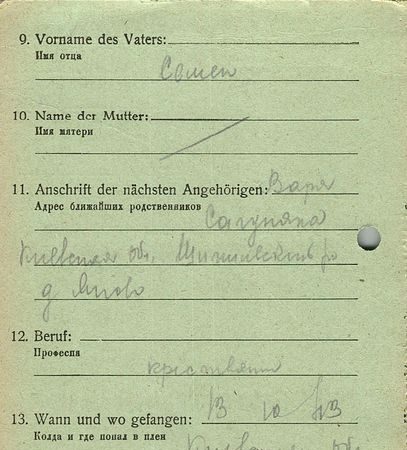 9. Vorname des Vaters:
Имя отца
Семен
10. Name der Mutter:
Имя матери
11. Anschrift der nächsten Angehörigen: Варя
Адрес ближайших родственников
Киевская обл.
д
12. Beruf:
Професия
13. Wann und wo gefangen: 13 10 43
Колда и где попал в плен
Киевская об